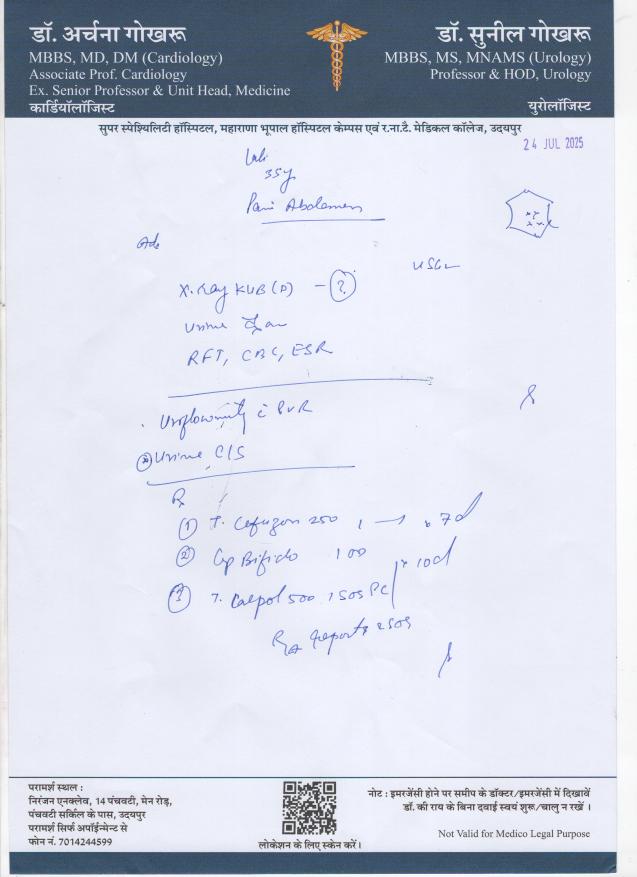 डॉ. अर्चना गोखरू
MBBS, MD, DM (Cardiology)
Associate Prof. Cardiology
Ex. Senior Professor & Unit Head, Medicine
कार्डियॉलॉजिस्ट
डॉ. सुनील गोखरू
MBBS, MS, MNAMS (Urology)
Professor & HOD, Urology
युरोलॉजिस्ट
सुपर स्पेश्यिलिटी हॉस्पिटल, महाराणा भूपाल हॉस्पिटल केम्पस एवं र.ना.टै. मेडिकल कॉलेज, उदयपुर
24 JUL 2025
35y
Pain Abdomen
Adv
USG
X.Ray KUB (P) - ?
Urine
RFT, CBC, ESR
Uroflowmetry c PVR
Urine C/S
Rx
1 T. 250 1 - 1 x 7d
2 Cap Bifido 100
x 10d
3 T. Calpol 500 1 SOS PC
Reports SOS
परामर्श स्थल :
निरंजन एनक्लेव, 14 पंचवटी, मेन रोड़,
पंचवटी सर्किल के पास, उदयपुर
परामर्श सिर्फ अपॉईन्मेन्ट से
फोन नं. 7014244599
लोकेशन के लिए स्केन करें।
नोट : इमरजेंसी होने पर समीप के डॉक्टर/इमरजेंसी में दिखावें
डॉ. की राय के बिना दवाई स्वयं शुरू/चालु न रखें ।
Not Valid for Medico Legal Purpose